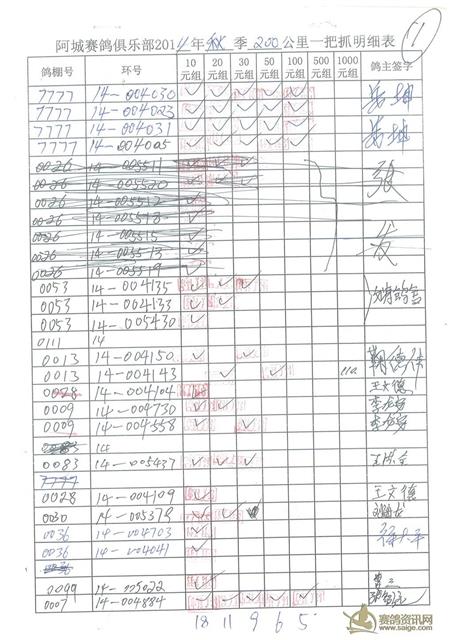 1
阿城赛鸽俱乐部2014年秋季200公里一把抓明细表
鸽棚号 环号 10元组 20元组 30元组 50元组 100元组 500元组 1000元组 鸽主签字
7777 14-004030 ✓ ✓ ✓ ✓ ✓
7777 14-004023 ✓ ✓ ✓ ✓ ✓
7777 14-004031 ✓ ✓ ✓ ✓ ✓
7777 14-004005 ✓ ✓ ✓ ✓ ✓
0026 14-005511
0026 14-005520
0026 14-005512
0026 14-005518
0026 14-005515
0026 14-005513
0026 14-005519
0053 14-004135 ✓ ✓ ✓
0053 14-004133 ✓ ✓
0053 14-005430 ✓
0111 14
0013 14-004150 ✓ ✓
0013 14-004143 ✓ ✓ ✓
0028 14-004104 王文德
0009 14-004730 ✓ ✓
0009 14-004558 ✓ ✓
0083 14
0083 14-005437 ✓ ✓ ✓
7777
0028 14-004109 ✓ 王文德
0030 14-005379 ✓ ✓
0036 14-004703 ✓
0036 14-004041 ✓
0036
0099 14-005022 ✓
0007 14-004884 ✓ ✓ ✓ ✓ ✓
18 11 9 6 5
赛鸽资讯网
www.saige.com